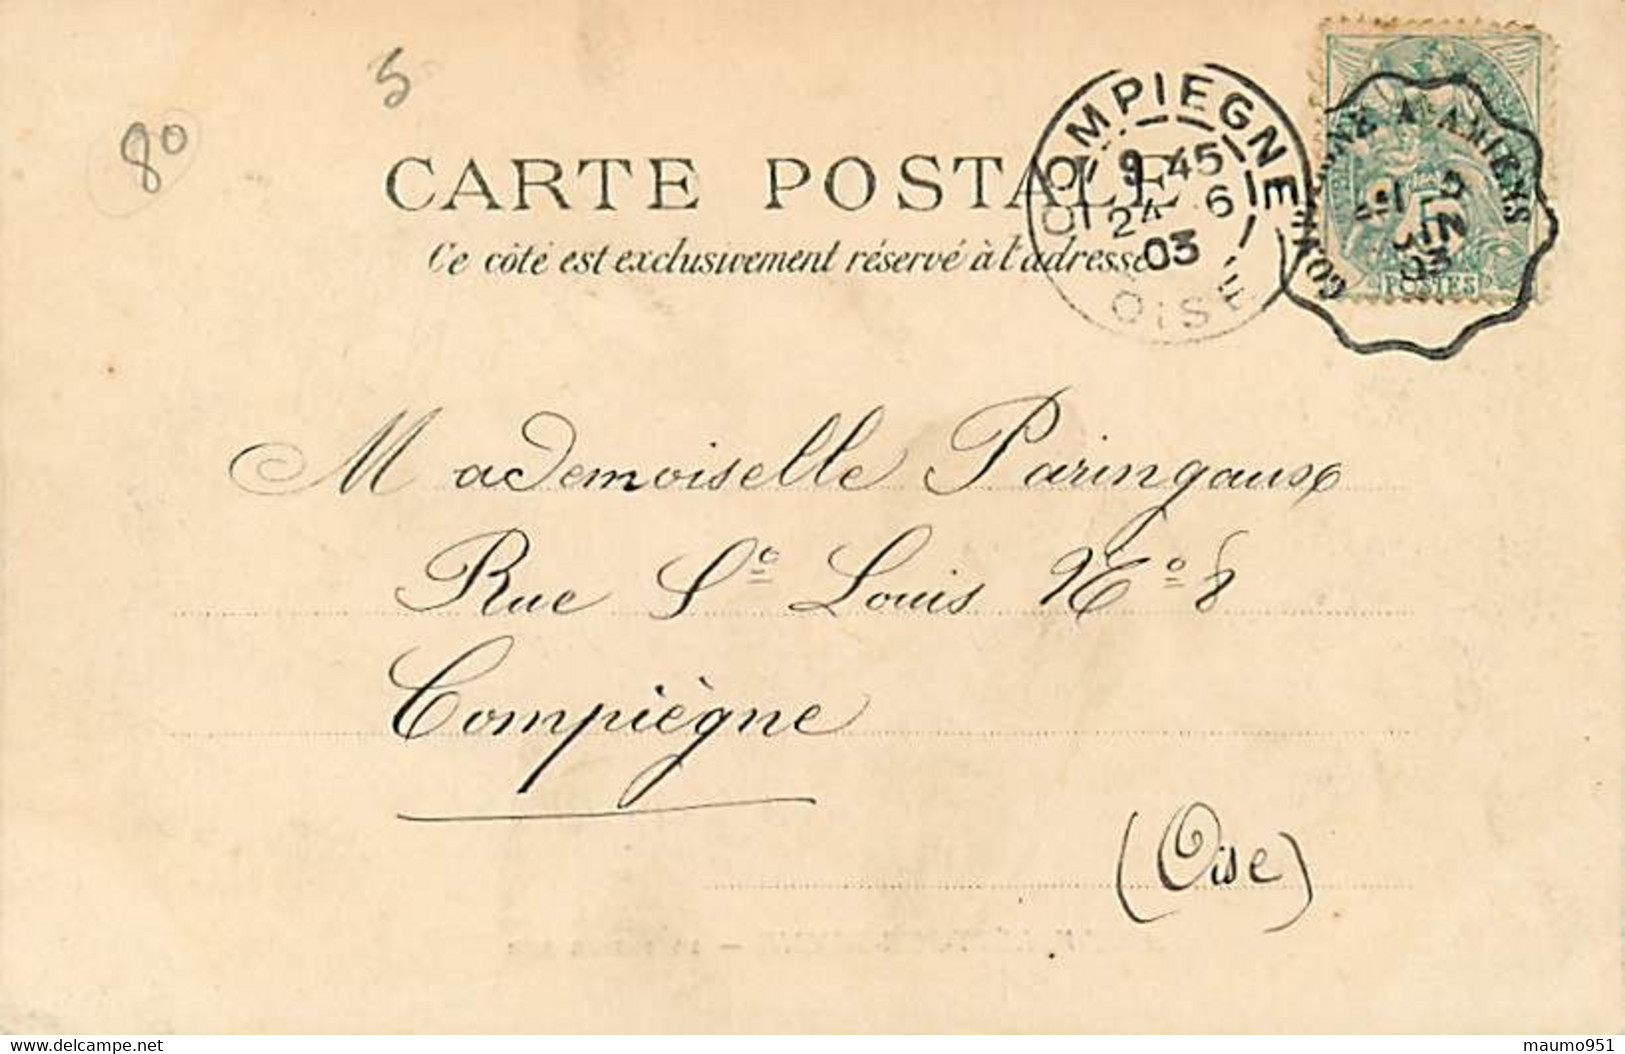 5
80
CARTE POSTALE
Ce côté est exclusivement réservé à l'adresse
COMPIEGNE
9 45
24 6
03
OISE
A AMIENS
03
POSTES
Mademoiselle Paringaux
Rue St Louis No 8
Compiègne
(Oise)
maumo951